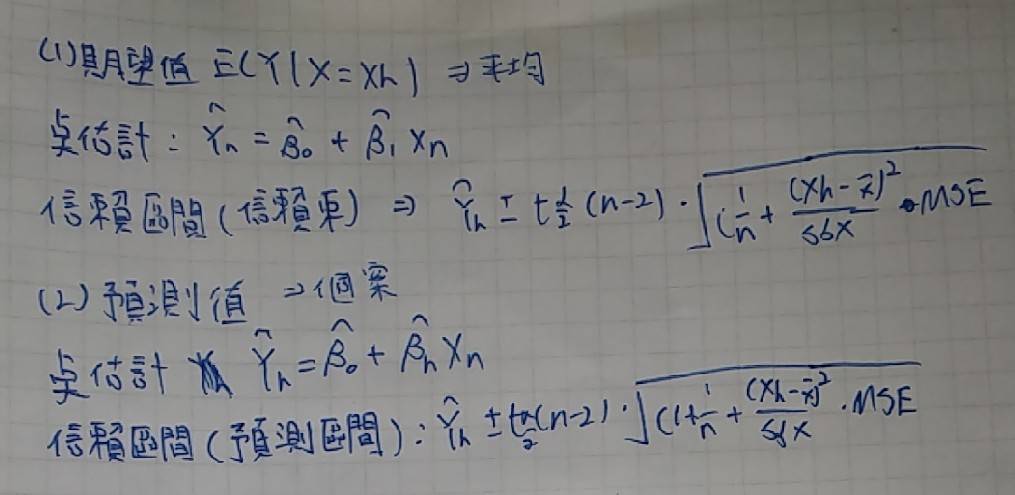 (1)期望值 E(Y|X=Xh) ⇒平均
點估計: Ŷn = β̂0 + β̂1 Xn
信賴區間(信賴帶) ⇒ Ŷh ± t α/2 (n-2) · √(1/n + (Xh-x̄)²/SSX · MSE
(2)預測值 ⇒個案
點估計 Ŷh = β̂0 + β̂h Xn
信賴區間(預測區間): Ŷh ± t α/2 (n-2) · √(1+1/n + (Xh-x̄)²/SSX · MSE